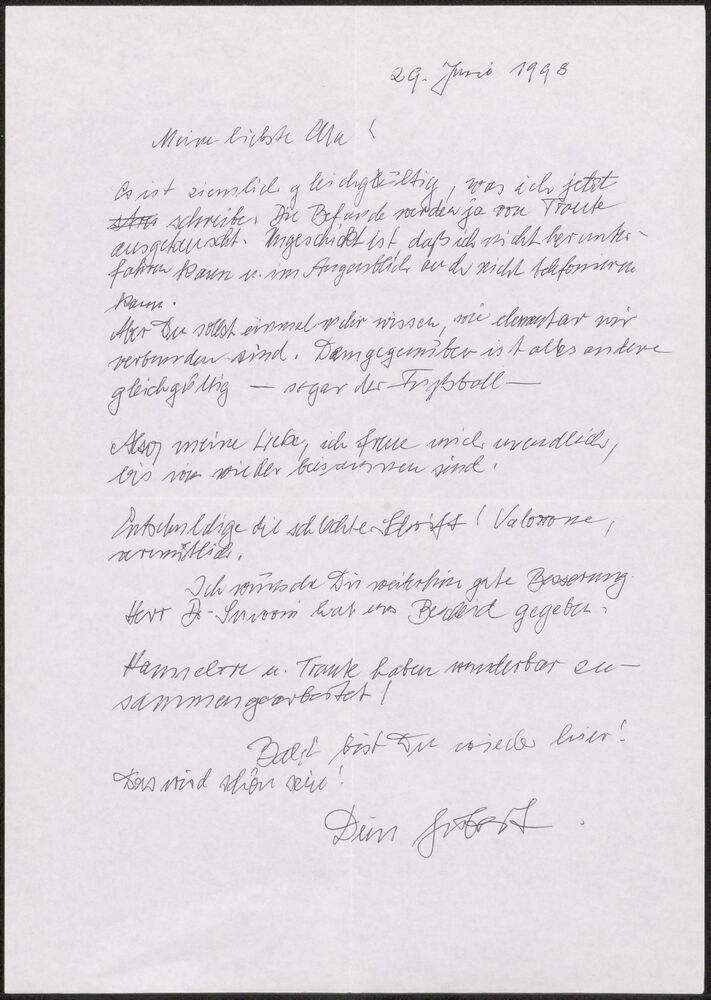 29. Juni 1998
Meine liebste Uta!
Es ist ziemlich gleichgültig, was ich jetzt
schreibe. Die Befunde werden ja von Traute
ausgetauscht. Ungeschickt ist, daß ich nicht herunter-
fahren kann u. im Augenblick auch nicht telefonieren
kann.
Aber Du sollst einmal mehr wissen, wie elementar wir
verbunden sind. Demgegenüber ist alles andere
gleichgültig — sogar der Fußball —
Also, meine Liebe, ich freue mich unendlich,
bis wir wieder beisammen sind.
Entschuldige die schlechte Schrift!
vermutlich.
Ich wünsche Dir weiterhin gute Besserung.
Herr Dr. hat uns Bescheid gegeben.
Hannelore u. Traute haben wunderbar zu-
sammengearbeitet!
Bald bist Du wieder hier!
Das wird schön sein!
Dein